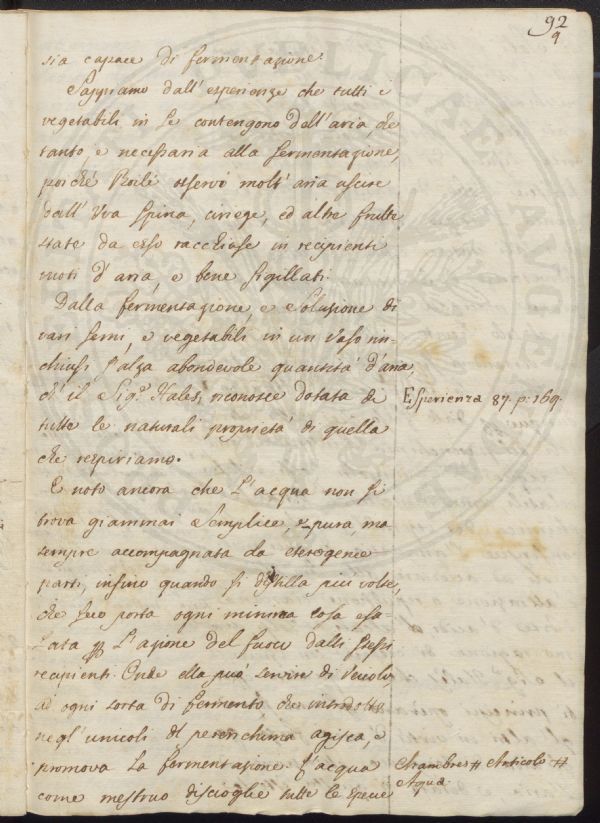 92
9
sia capace di fermentazione.
Sappiamo dall'esperienze che tutti e
vegetabili in se contengono dell'aria, che
tanto, e necessaria alla fermentazione,
poiché Boilé osservò molt'aria uscire
dall'Uva Spina, ciriege, ed altre frutte
state da esso racchiuse in recipienti
vuoti d'aria, e bene sigillati.
Dalla fermentazione, e soluzione di
vari semi, e vegetabili in un Vaso rin-
chiusi s'alza abondevole quantità d'aria,
ch'il Sig.e Hales, riconosce dotata di
Esperienza 87. p: 169.
tutte le naturali proprietà di quella
che respiriamo.
E noto ancora che L'acqua non si
trova giammai Semplice, e pura, ma
sempre accompagnata da eterogenee
parti, insino quando si distilla più volte,
che seco porta ogni minima cosa esa-
lata L'azione del fuoco dalli stessi
recipienti. Onde ella può servire di Veicolo,
ad ogni sorta di fermento che introdotto
negl'utricoli del perenchima agisca, e
promova La fermentazione. L'acqua
Chambres # Articolo #
Aqua.
come mestruo discioglie tutte le specie